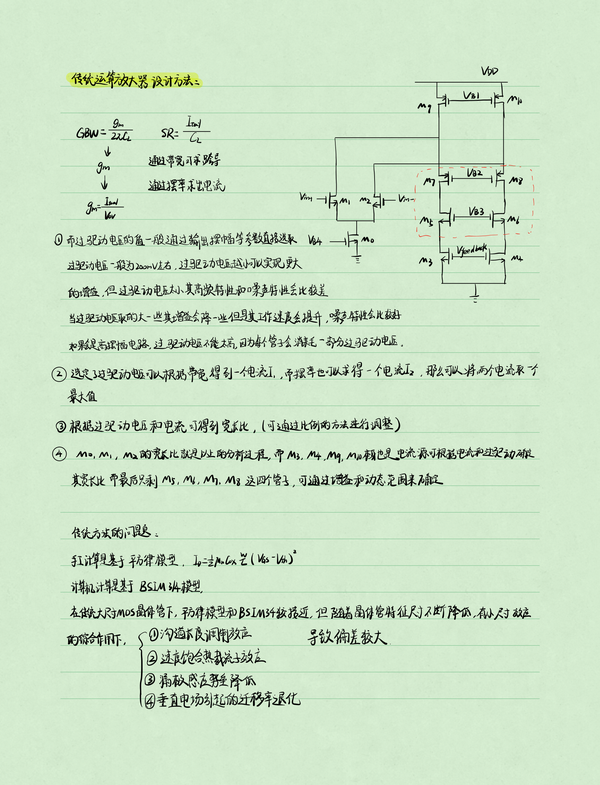 传统运算放大器设计方法：
VDD
M9 VB1 M10
GBW = gm / 2πCL SR = Itail / CL
↓
gm 通过带宽可求跨导
↓ 通过摆率求出电流
gm = Itail / Vov
M7 VB2 M8
Vin M1 M2 Vin
M5 VB3 M6
VB4 M0
M3 Vfeedback M4
① 而过驱动电压的值一般通过输出摆幅等参数直接选取
过驱动电压一般为200mV左右，过驱动电压越小可以实现更大
的增益，但过驱动电压太小其高频特性和噪声特性会比较差
当过驱动电压取的大一些其增益会降一些但是其工作速度会提升，噪声特性会比较好
如果是高摆幅电路，过驱动电压不能太高，因为每个管子会消耗一部分过驱动电压。
② 选定过驱动电压可以根据带宽得到一个电流I1，而摆率也可以求得一个电流I2，那么可以将两个电流取一个
最大值
③ 根据过驱动电压和电流可得到宽长比，（可通过比例的方法进行调整）
④ M0, M1, M2的宽长比就是以上的分析过程，而M3, M4, M9, M10 也是电流源可根据电流和过驱动确定
其宽长比 而最后只剩 M5, M6, M7, M8 这四个管子，可通过增益和动态范围来确定
传统方法的问题：
手工计算是基于平方律模型，ID = ½ μn Cox W/L (VGS - Vth)²
计算机计算是基于 BSIM3/4模型，
在传统大尺寸MOS晶体管下，平方律模型和BSIM3/4较接近，但随着晶体管特征尺寸不断降低，在小尺寸效应
的综合作用下， ① 沟道长度调制效应 导致偏差较大
② 速度饱合热载流子效应
③ 漏极感应势垒降低
④ 垂直电场引起的迁移率退化